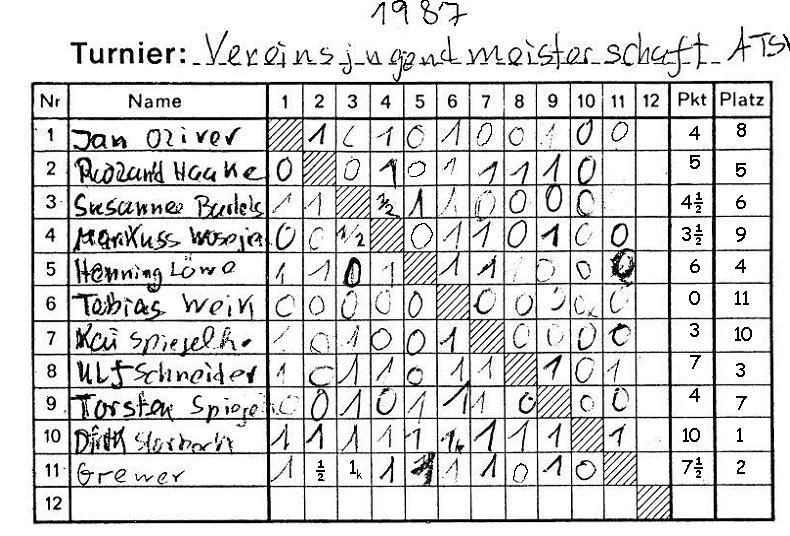 1987
Turnier: Vereinsjugendmeisterschaft ATSV
Nr Name 1 2 3 4 5 6 7 8 9 10 11 12 Pkt Platz
1 Jan Oliver 1 0 1 0 1 0 0 1 0 0 4 8
2 Roland Haake 0 0 1 0 1 1 1 1 0 5 5
3 Susanne Bartels 1 1 ½ 1 1 0 0 0 0 4½ 6
4 Markuss 0 0 1/2 0 1 1 0 1 0 0 3½ 9
5 Henning Löwe 1 1 0 1 1 1 0 0 6 4
6 Tobias Weik 0 0 0 0 0 0 0 0 0 11
7 Kai Spiegelh. 1 0 1 0 0 1 0 0 0 0 3 10
8 Ulf Schneider 1 0 1 1 0 1 1 1 0 1 7 3
9 Torsten Spiegel 0 0 1 0 1 1 1 0 0 0 4 7
10 Dirk 1 1 1 1 1 1k 1 1 1 1 10 1
11 Grewer 1 ½ 1k 1 1 1 0 1 0 7½ 2
12